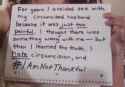 For years I avoided sex with
my circumcised husband
because it was just too
painful. I thought there was
something wrong with me - but
then I learned the truth. I
hate circumcision, and
#IAmNotThankful